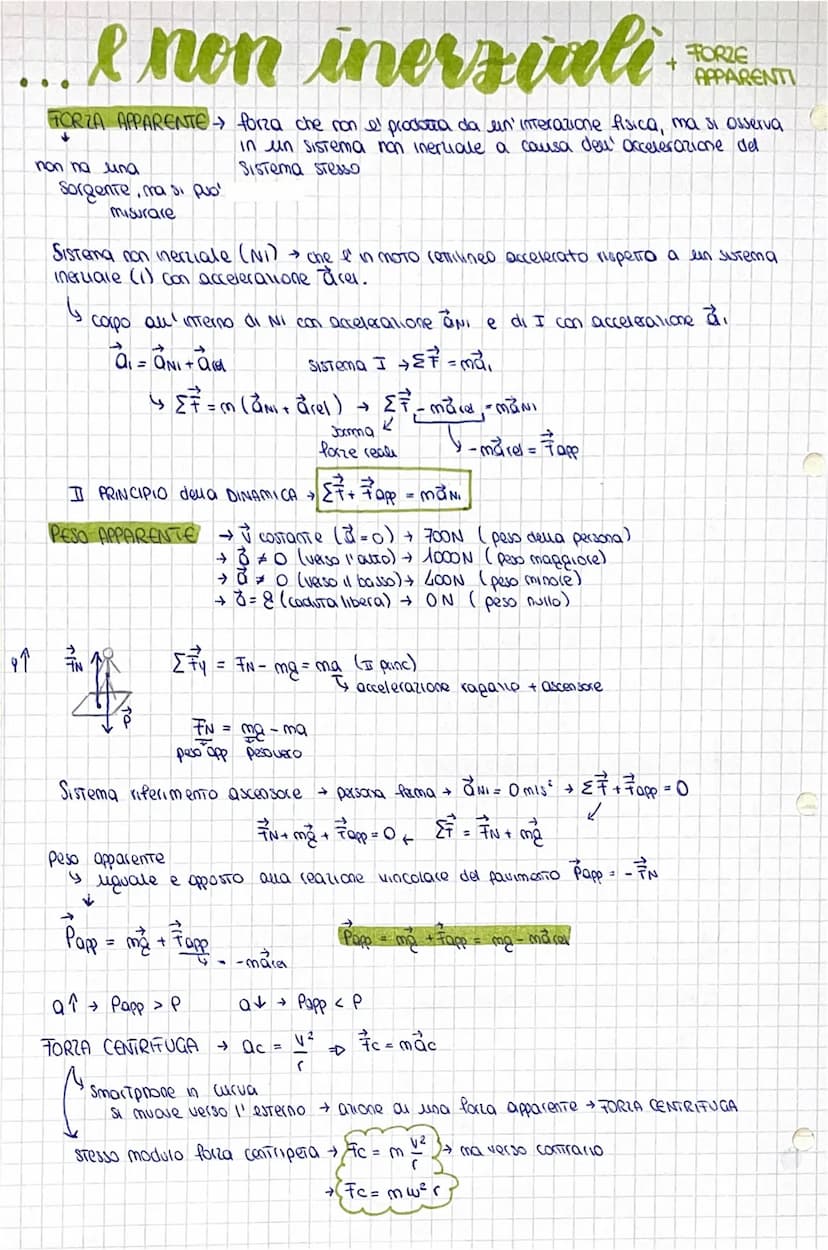 ... e non inerziali + FORZE APPARENTI
FORZA APPARENTE → forza che non e' prodotta da un'interazione fisica, ma si osserva
in un sistema non inerziale a causa dell'accelerazione del
sistema stesso
non ha una
sorgente, ma si puo'
misurare
Sistema non inerziale (NI) → che e' in moto rettilineo accelerato rispetto a un sistema
inerziale (I) con accelerazione a⃗rel.
↳ corpo all'interno di NI con accelerazione a⃗NI e di I con accelerazione a⃗I
a⃗I = a⃗NI + a⃗rel sistema I → ΣF⃗ = ma⃗I
↳ ΣF⃗ = m (a⃗NI + a⃗rel) → ΣF⃗ - ma⃗rel = ma⃗NI
somma
forze reali
-ma⃗rel = F⃗app
II PRINCIPIO della DINAMICA → ΣF⃗ + F⃗app = ma⃗NI
PESO APPARENTE → v⃗ costante (a⃗ = 0) → 700N (peso della persona)
→ a⃗ ≠ 0 (verso l'alto) → 1000N (peso maggiore)
→ a⃗ ≠ 0 (verso il basso) → 400N (peso minore)
→ a⃗ = g (caduta libera) → 0N (peso nullo)
y↑ F⃗N ΣF⃗y = FN - mg = ma (II princ)
↳ accelerazione ragazzo + ascensore
P⃗
FN = mg - ma
peso app peso vero
Sistema riferimento ascensore → persona ferma → a⃗NI = 0 m/s² → ΣF⃗ + F⃗app = 0
F⃗N + mg⃗ + F⃗app = 0 ← ΣF⃗ = F⃗N + mg⃗
Peso apparente
↳ uguale e opposto alla reazione vincolare del pavimento P⃗app = -F⃗N
P⃗app = mg⃗ + F⃗app P⃗app = mg⃗ + F⃗app = mg - ma⃗rel
↳ = -ma⃗rel
a↑ → Papp > P a↓ → Papp < P
FORZA CENTRIFUGA → ac = v²/r ⇒ F⃗c = ma⃗c
↳ smartphone in curva
si muove verso l'esterno → azione di una forza apparente → FORZA CENTRIFUGA
stesso modulo forza centripeta → Fc = m v²/r → ma verso contrario
→ Fc = mω² r